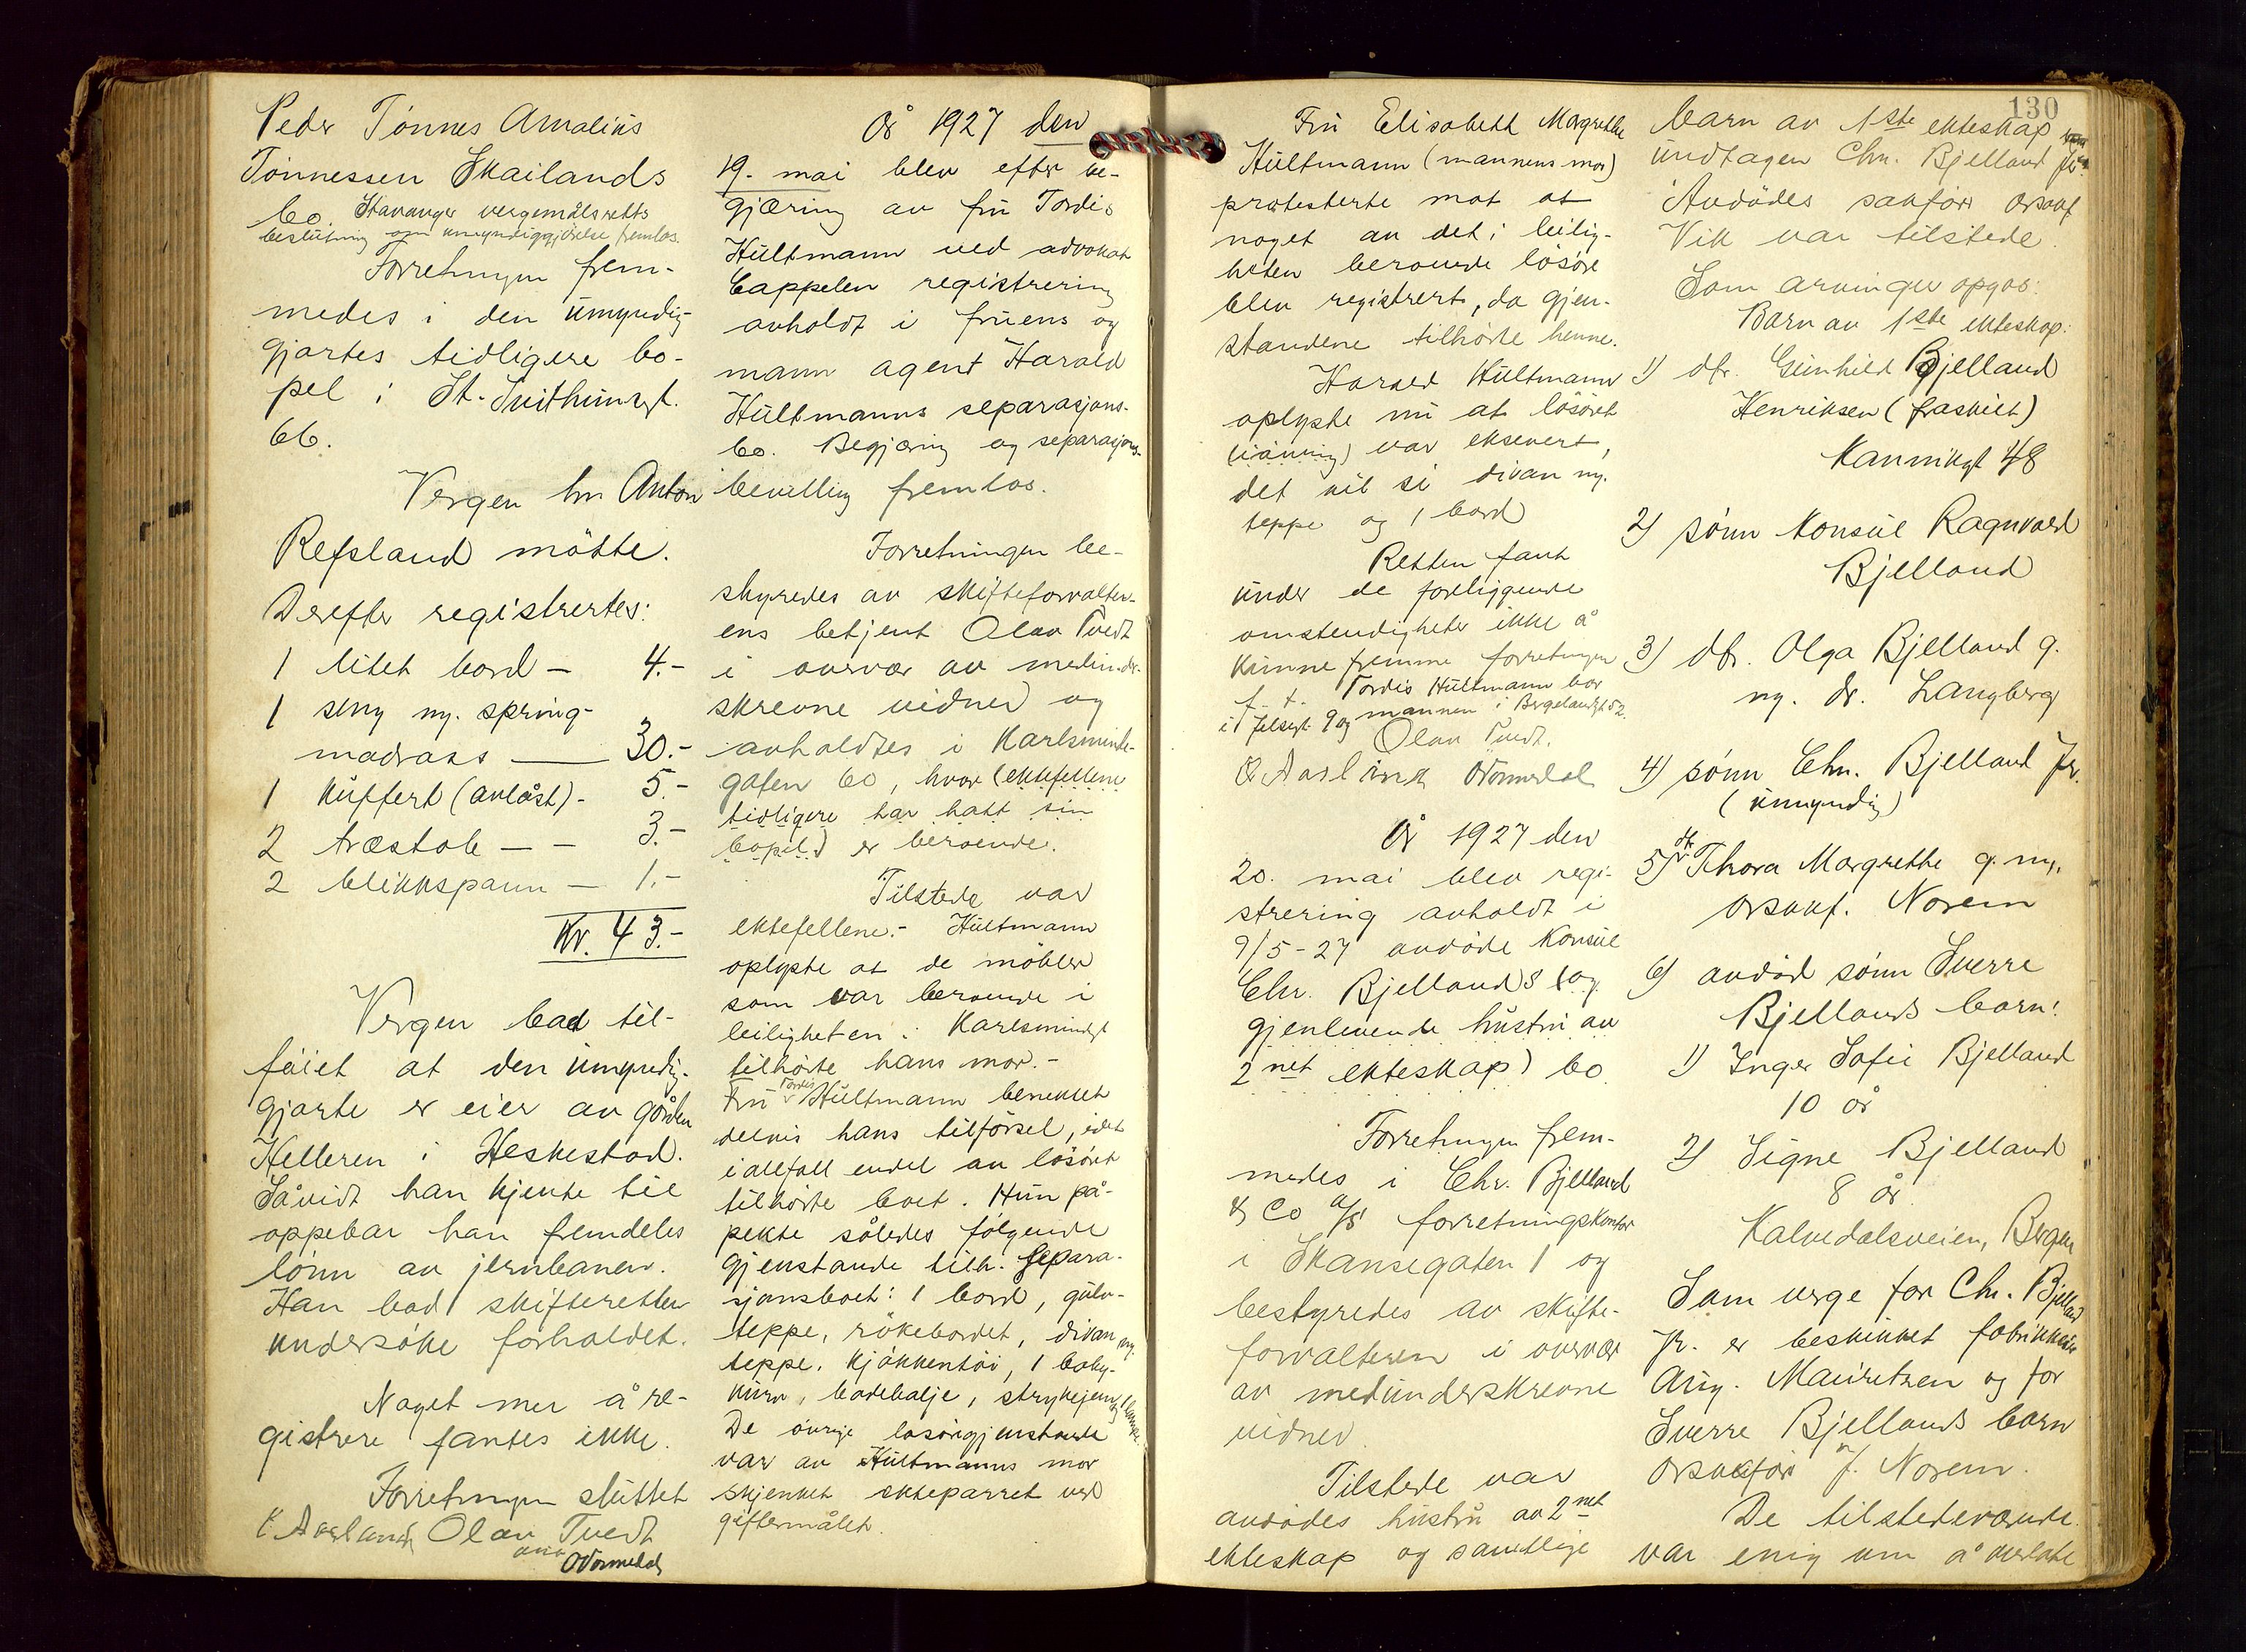 Peder Tönnes Amalius
Tönnessen Skailands
bo. Stavanger vergemålsretts
beslutning om umyndiggjörelse fremlas.
Forretningen frem-
medes i den umyndig-
gjortes tidligere bo-
pel i St. Svithunsgt.
66.
Vergen hr. Anton
Refsland mötte.
Derefter registrertes:
1 litet bord — 4.-
1 seng m. spring-
madrass — 30.-
1 kuffert (avlåst) - 5.-
2 træstole — - 3.-
2 blikkspann — 1.-
Kr. 43.-
Vergen bad til-
föiet at den umyndig-
gjorte er eier av gården
Helleren i Heskestad.
Såvidt han kjente til
oppebar han fremdeles
lönn av jernbanen.
Han bad skifteretten
undersöke forholdet.
Noget mer å re-
gistrere fantes ikke.
Forretningen sluttet
Olav Tvedt
År 1927 den
19. mai blev efter be-
gjæring av fru Tordis
Hultmann ved advokat
Cappelen registrering
avholdt i fruens og
mann agent Harald
Hultmanns separasjons-
bo. Begjæring og separasjons-
bevilling fremlas.
Forretningen be-
styredes av skifteforvalter-
ens betjent Olav Tvedt
i overvær av medunder-
skrevne vidner og
avholdtes i Karlsminde-
gaten 60, hvor (ektefellene
tidligere har hatt sin
bopel) er beroende.
Tilstede var
ektefellene.- Hultmann
oplyste at de möbler
som var beroende i
leiligheten i Karlsmindegt
tilhörte hans mor.-
Fru Tordis Hultmann benektet
delvis hans tilförsel, idet
iallfall endel av lösöret
tilhörte boet. Hun på-
pekte således fölgende
gjenstande tilh. separa-
sjonsboet: 1 bord, gulv-
teppe, rökebordet, divan m.
teppe, kjökkentöi, 1 baby-
kurv, badebalje, strykejern og 1 lampe.
De övrige lösöregjenstande
var av Hultmanns mor
skjenket ekteparret ved
giftermålet.
130
Fru Elisabeth Margrethe
Hultmann (mannens mor)
protesterte mot at
noget av det i leilig-
heten beroende lösöre
blev registrert, da gjen-
standene tilhörte henne.
Harald Hultmann
oplyste nu at lösöret
var eksevert,
det vil si divan m.
teppe og 1 bord
Retten fant
under de foreliggende
omstendigheter ikke å
kunne fremme forretningen
f. t. Tordis Hultmann bor
i Jelsagt. 9 og mannen i Bergelandsgt 52.
Olav Tvedt.
År 1927 den
20. mai blev regi-
strering avholdt i
9/5-27 avdöde konsul
Chr. Bjellands (og
gjenlevende hustru av
2net ekteskap) bo.
Forretningen frem-
medes i Chr. Bjelland
& Co A/S' forretningskontor
i Skansegaten 1 og
bestyredes av skifte-
forvalteren i overvær
av medunderskrevne
vidner.
Tilstede var
avdödes hustru av 2net
ekteskap og samtlige
barn av 1ste ekteskap
undtagen Chr. Bjelland jr.
Avdödes sakförer orsakf
Vik var tilstede.
Som arvinger opgas:
Barn av 1ste ekteskap:
1) dtr. Gunhild Bjelland
Henriksen (fraskilt)
Kannikgt 48
2) sönn konsul Ragnvald
Bjelland
3) dtr. Olga Bjelland g.
m. dr. Langberg
4) sönn Chr. Bjelland jr.
(umyndig)
5) dtr Thora Margrethe g. m.
orsakf. Norem
6) avdöd sönn Sverre
Bjellands barn:
1) Inger Sofie Bjelland
10 år
2) Signe Bjelland
8 år.
Kalvedalsveien, Bergen
Som verge for Chr. Bjelland
jr. er beskikket fabrikkeier
Aug. Mauritzen og for
Sverre Bjellands barn
orsakförer J. Norem.
De tilstedeværende
var enig om å overlate